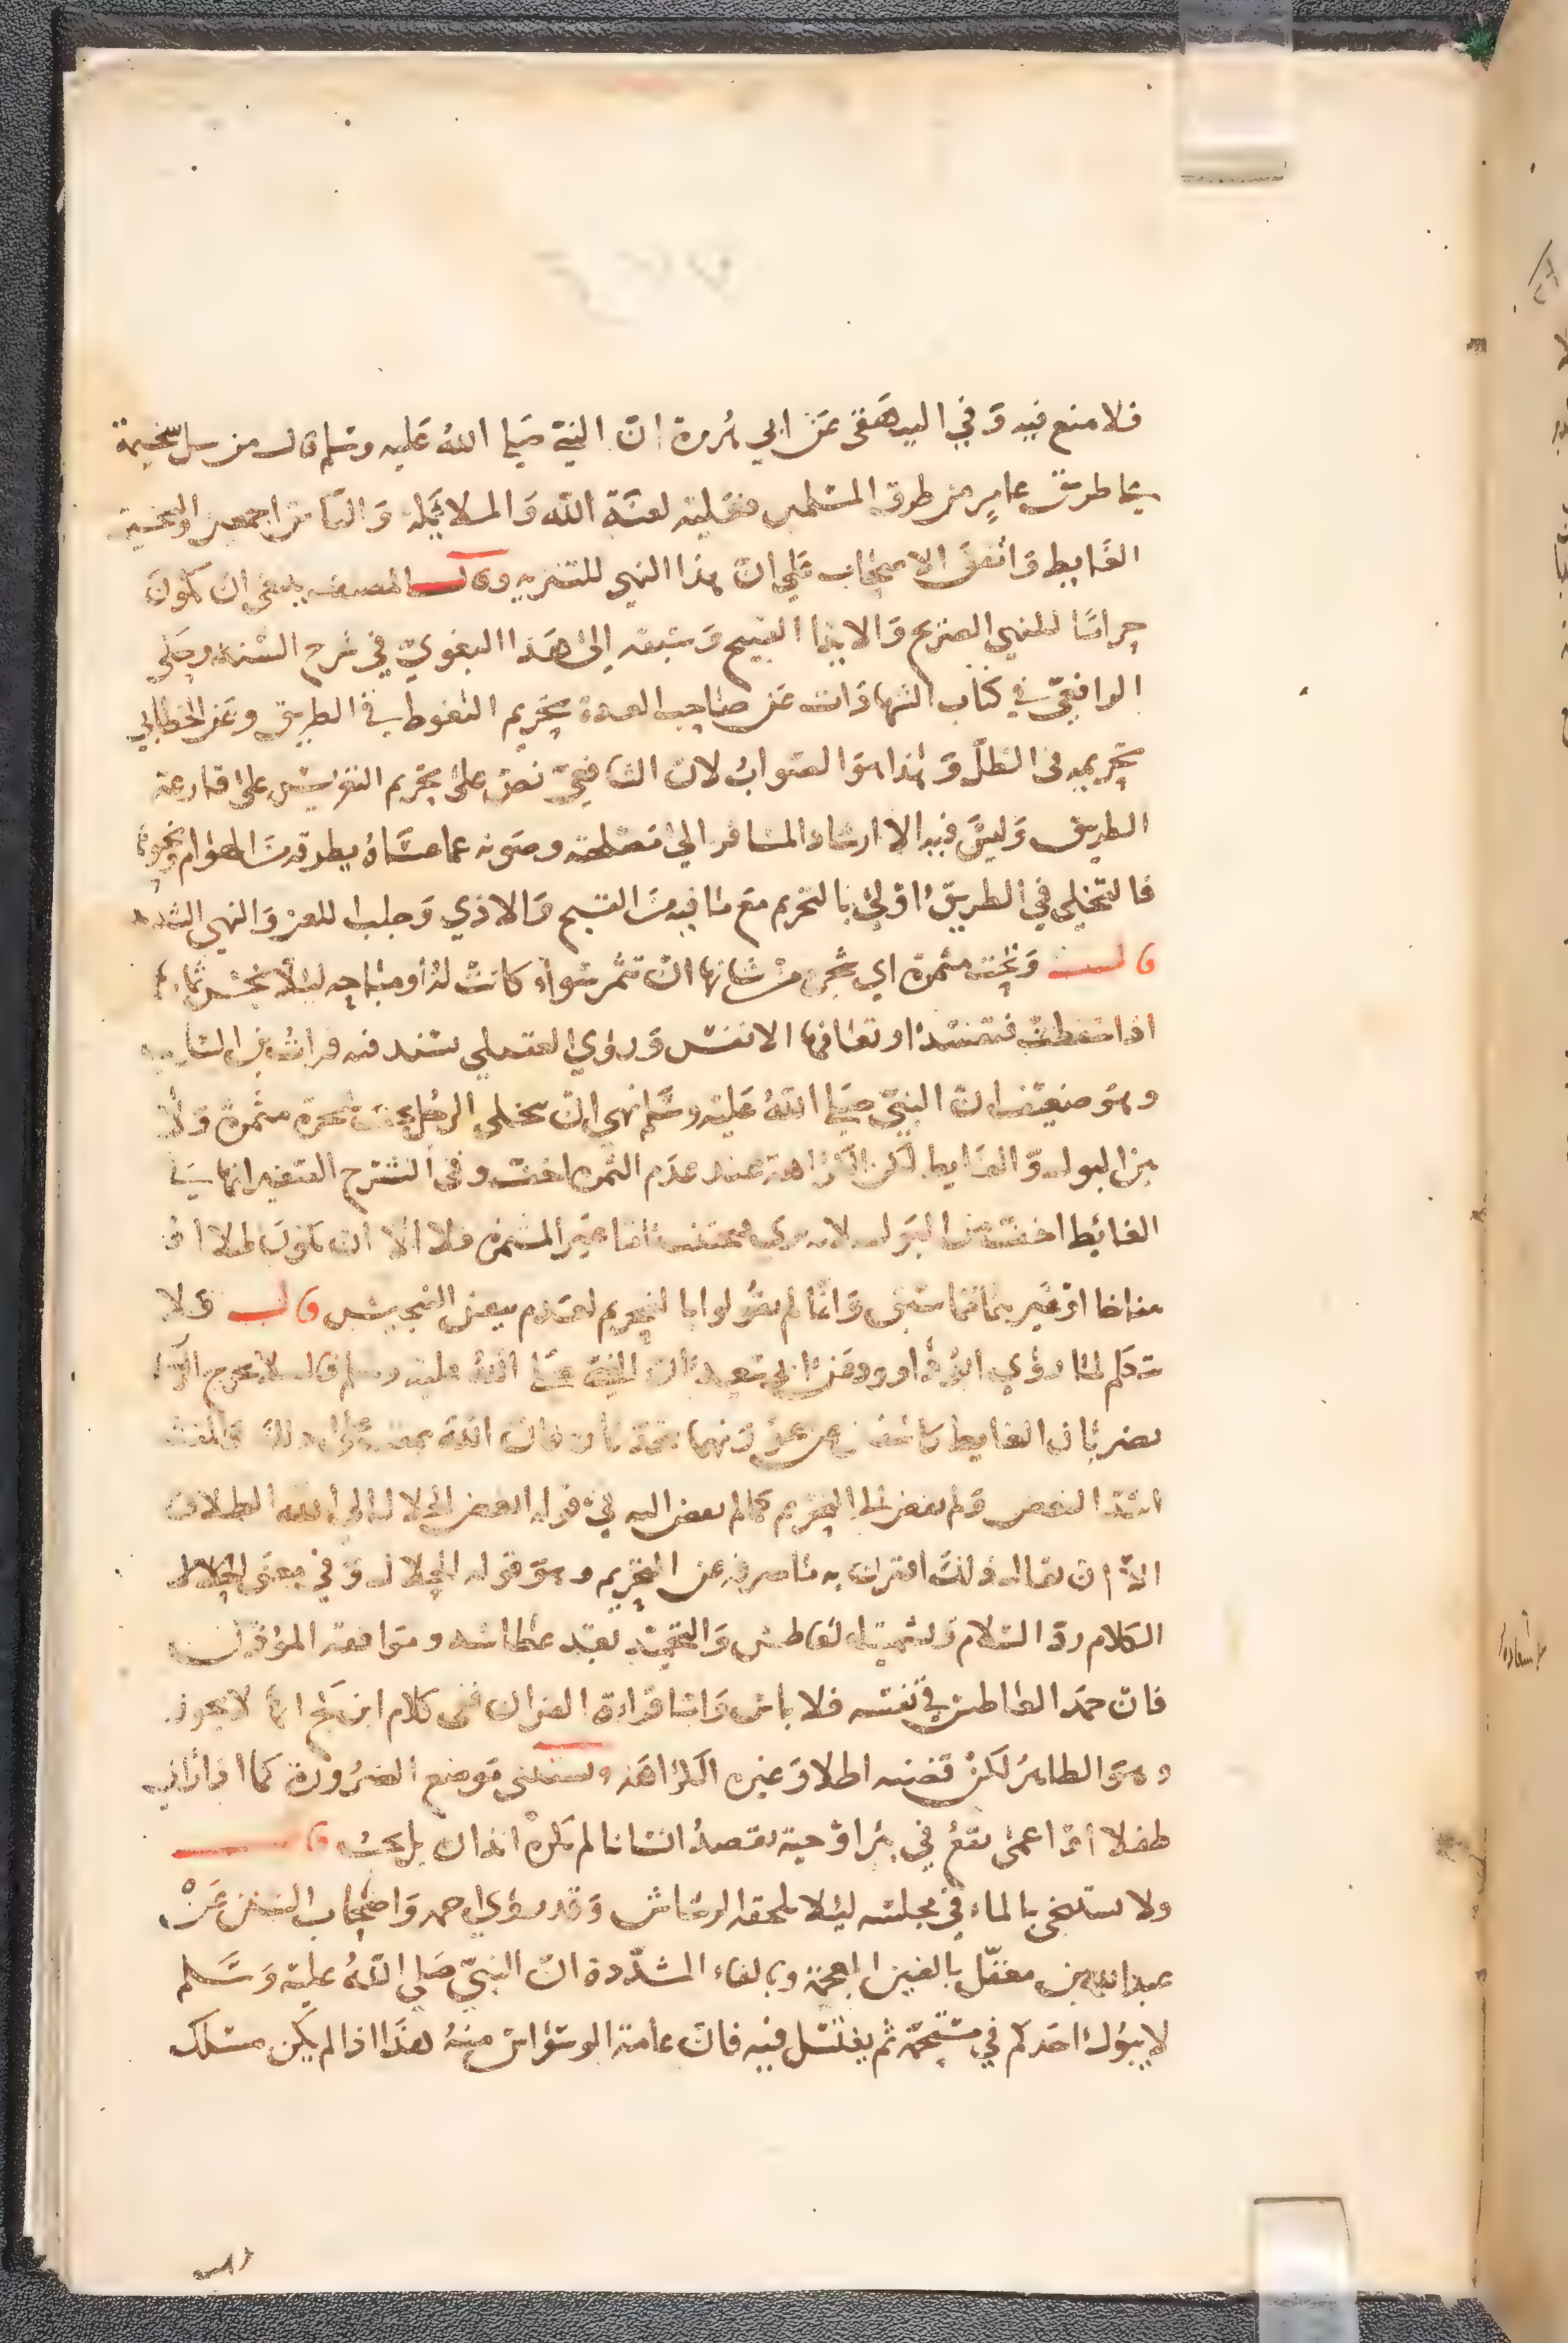 فلا منع فيه وفي البيهقي عن ابي هريرة ان النبي صلى الله عليه وسلم قال من سل سخيمة
على طريق عامر من طرق المسلمين فعليه لعنة الله والملائكة والناس اجمعين والسخيمة
الغايط واتفق الاصحاب على ان هذا النهي للتنزيه وقال المصنف ينبغي ان يكون
حراما للنهي الصريح والايذا القبيح وسبقه الى هذا البغوي في شرح السنة وحكى
الرافعي في كتاب الشهادات عن صاحب العدة تحريم التغوط في الطريق وعن الخطابي
تحريمه في الظل وهذا هو الصواب لان الشافعي نص على تحريم التعريس على قارعة
الطريق وليس فيه الا ارشاد المسافر الى مصلحته وصونه عما عساه يطرقه من الهوام ونحوها
فالتخلي في الطريق اولى بالتحريم مع ما فيه من القبح والاذي وجلب اللعن والنهي الشديد
قال وتحت مثمرة اي شجرة من شانها ان تثمر سواء كانت له او مباحه ليلا تنجس ثمارها
اذا سقطت فتفسد او تعافها الانفس وروي العقيلي بسند فيه فرات بن السايب
وهو ضعيف ان النبي صلى الله عليه وسلم نهى ان يتخلى الرجل تحت شجرة مثمرة ولا
بين البول والغايط لكن الكراهة عند عدم الثمرة اخف وفي الشرح الصغير انها في
الغائط اخف من البول لانه يرى فيجتنب اما غير المثمرة فلا الا ان يكون ظلا او
مناخا او غير ذلك مما سبق وانما لم يقولوا بالتحريم لعدم تيقن التنجيس قال ولا
يتكلم لما روي ابو داوود عن ابي سعيد ان النبي صلى الله عليه وسلم قال لا يخرج الرجلان
يضربان الغايط كاشفين عن عورتهما يتحدثان فان الله يمقت على ذلك والمقت
اشد البغض ولم يفض الى التحريم كما لم يفض اليه في قوله ابغض الحلال الى الله الطلاق
الا ان يقال ذلك اقترن به ما صرفه عن التحريم وهو قوله الحلال وفي معنى
الكلام رد السلام وتشميت العاطس والتحميد بعد عطاسه وموافقة المؤذن
فان حمد العاطس في نفسه فلا باس واما قراءة القران ففي كلام ابن كج انها لا تجوز
وهو الظاهر لكن قضية اطلاق غيره الكراهة ويستثنى موضع الضرورة كما اذا راى
طفلا او اعمى يقع في بئر او حية تقصد انسانا لم يكره انذاره بل يجب قال
ولا يستنجي بالماء في مجلسه ليلا يلحقه الرشاش وقد روي احمد واصحاب السنن عن
عبد الله بن مغفل بالغين المعجمة وبالفاء المشددة ان النبي صلى الله عليه وسلم
لا يبول احدكم في مستحمه ثم يغتسل فيه فان عامة الوسواس منه هذا اذا لم يكن مسلك